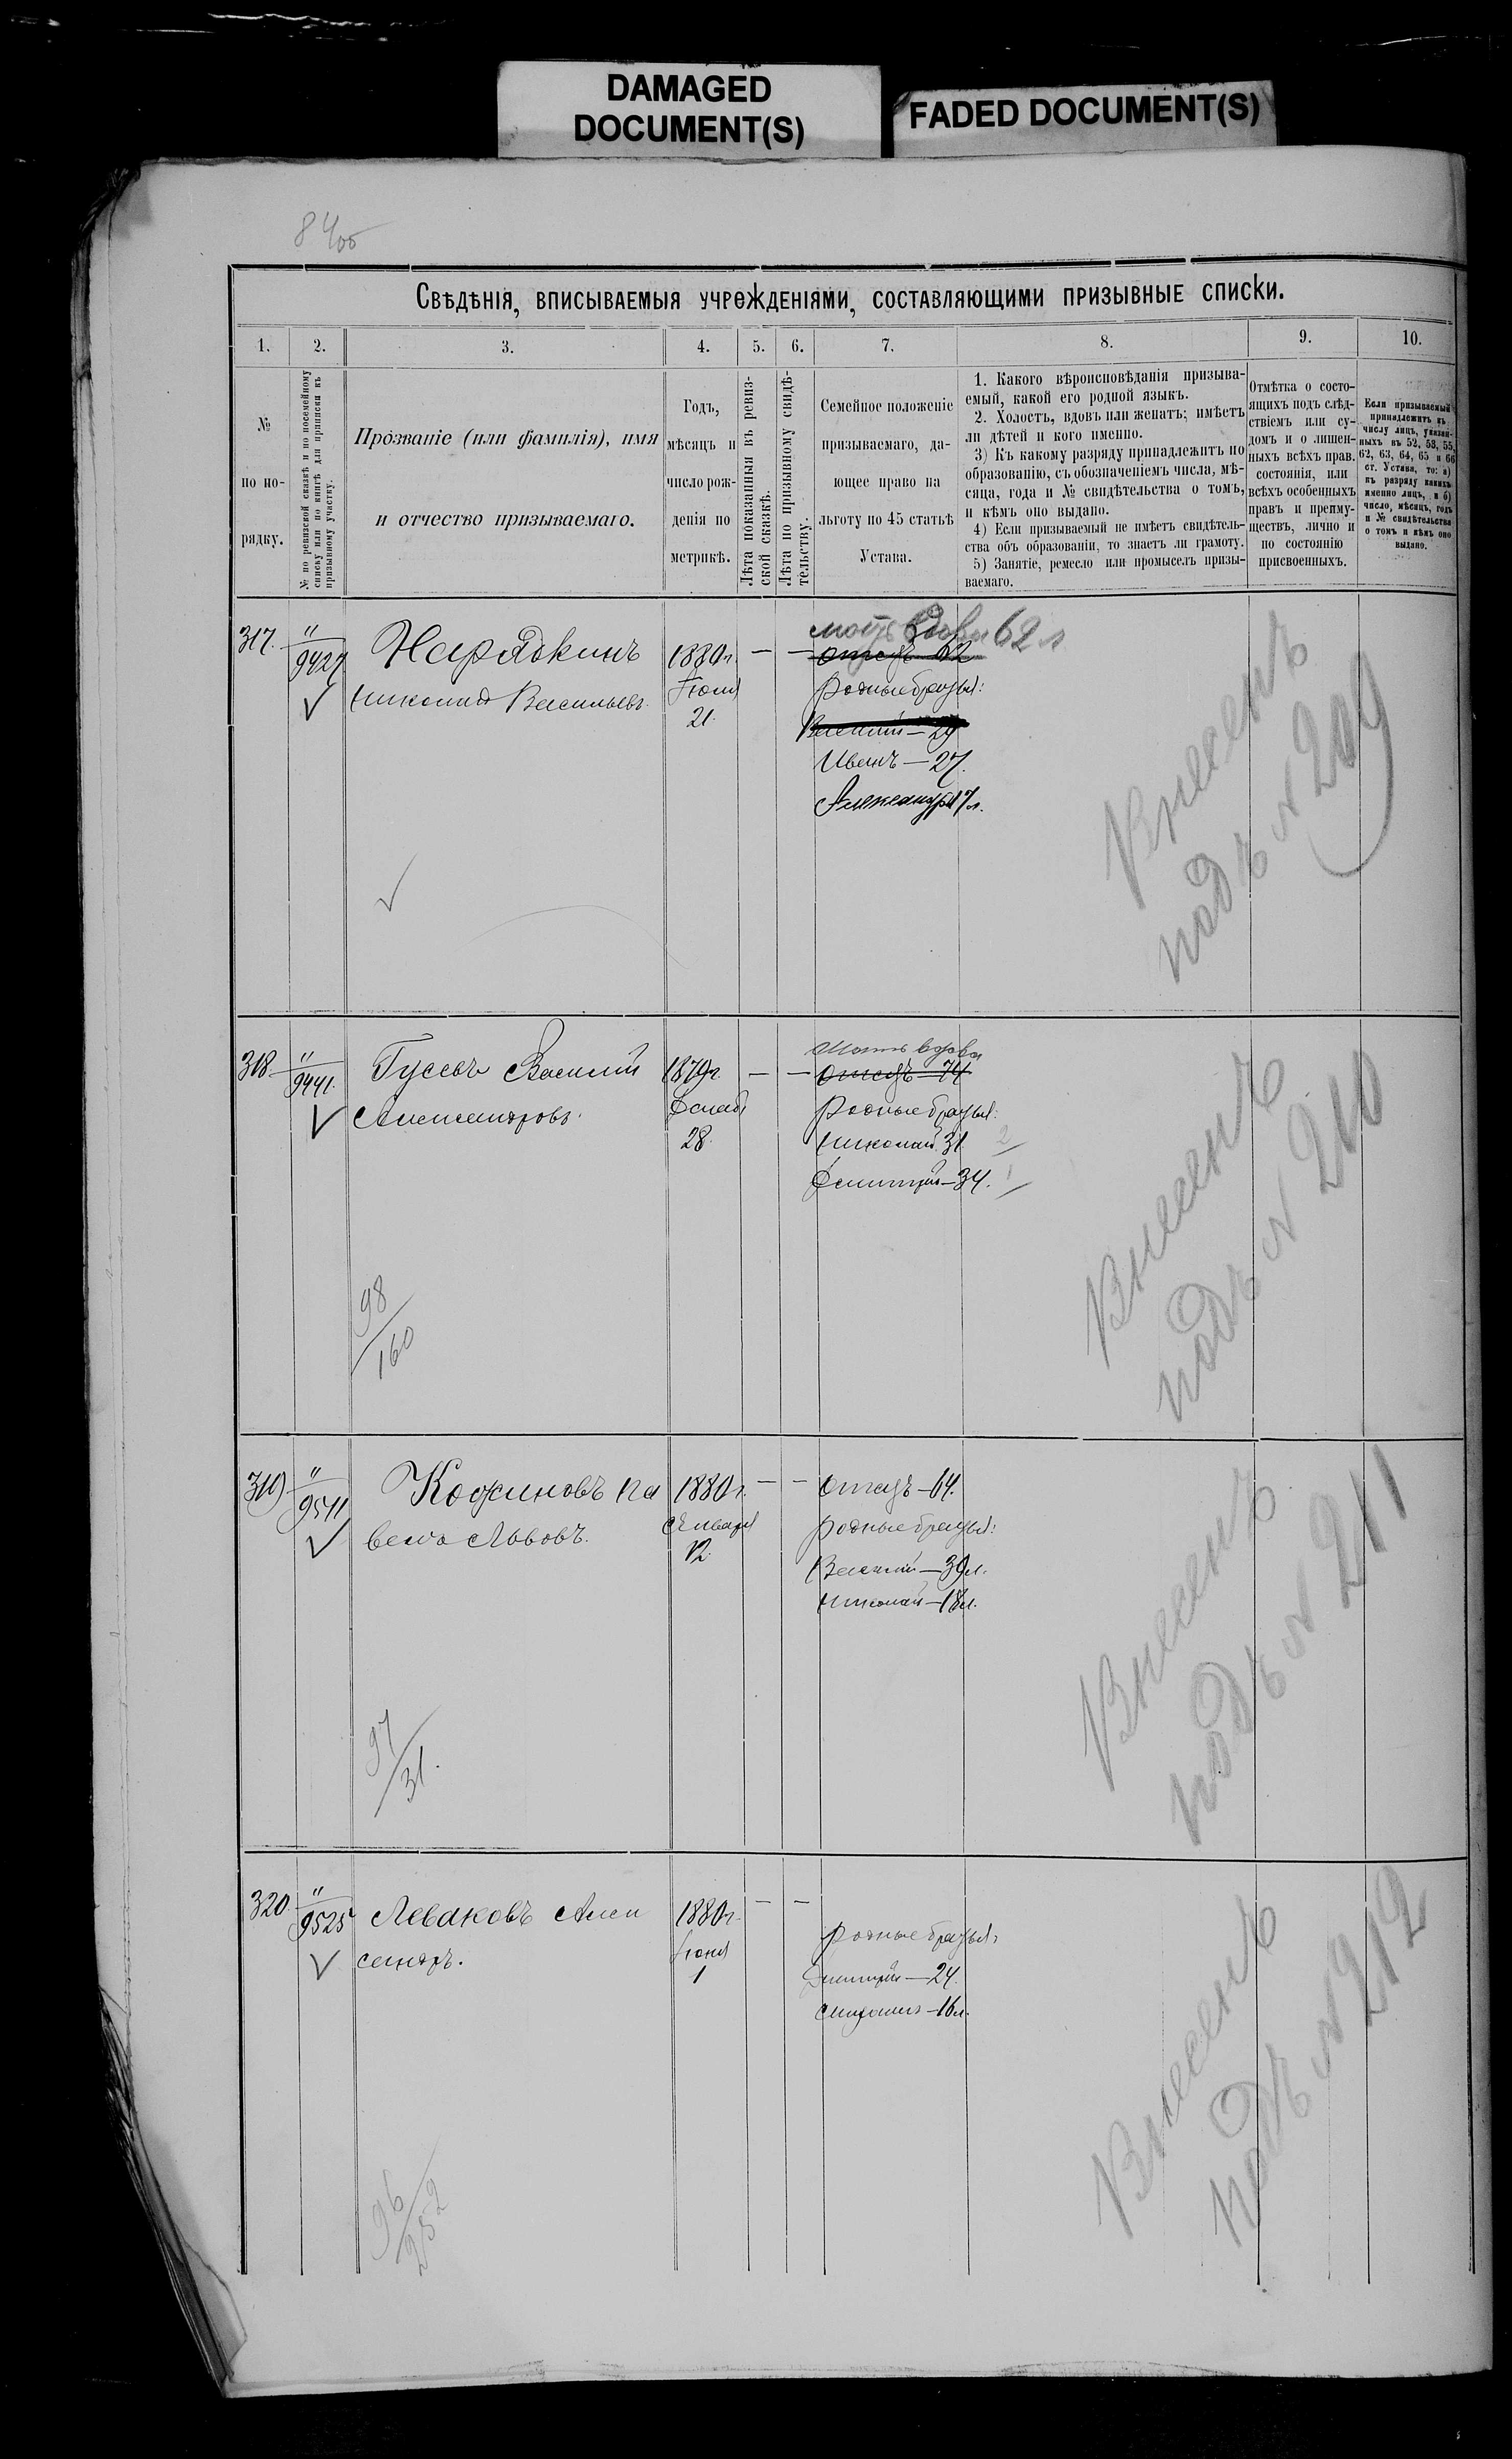 DAMAGED
DOCUMENT(S)
FADED DOCUMENT(S)
84об
Свѣдѣнія, вписываемыя учрежденіями, составляющими призывные списки.
1. 2. 3. 4. 5. 6. 7. 8. 9. 10.
№
по по-
рядку.
№ по ревизской сказкѣ и по посемейному
списку или по книгѣ для приписки къ
призывному участку.
Прозваніе (или фамилія), имя
и отчество призываемаго.
Годъ,
мѣсяцъ и
число рож-
денія по
метрикѣ.
Лѣта показанныя въ ревиз-
ской сказкѣ.
Лѣта по призывному свидѣ-
тельству.
Семейное положеніе
призываемаго, да-
ющее право на
льготу по 45 статьѣ
Устава.
1. Какого вѣроисповѣданія призыва-
емый, какой его родной языкъ.
2. Холостъ, вдовъ или женатъ; имѣетъ
ли дѣтей и кого именно.
3) Къ какому разряду принадлежитъ по
образованію, съ обозначеніемъ числа, мѣ-
сяца, года и № свидѣтельства о томъ,
и кѣмъ оно выдано.
4) Если призываемый не имѣетъ свидѣтель-
ства объ образованіи, то знаетъ ли грамоту.
5) Занятіе, ремесло или промыселъ призы-
ваемаго.
Отмѣтка о состо-
ящихъ подъ слѣд-
ствіемъ или су-
домъ и о лишен-
ныхъ всѣхъ прав.
состоянія, или
всѣхъ особенныхъ
правъ и преиму-
ществъ, лично и
по состоянію
присвоенныхъ.
Если призываемый
принадлежитъ къ
числу лицъ, указан-
ныхъ въ 52, 53, 55,
62, 63, 64, 65 и 66
ст. Устава, то: а)
къ разряду какихъ
именно лицъ, и б)
число, мѣсяцъ, годъ
и № свидѣтельства
о томъ и кѣмъ оно
выдано.
317. " 9427 Нарядкинъ 1880г. — —
Николай Васильевъ. Іюля
21.
мать вдова 62 л
отецъ 62
родные братья:
Василій — 29
Иванъ — 27.
Александръ 17 л.
Внесенъ
подъ № 209
318. " 9441. Гусевъ Василій 1879г. — —
Александровъ. Декаб
28.
Мать вдова
отецъ — 74
родные братья:
Николай 31 2
Дмитрій — 34. 1
98/160
Внесенъ
подъ № 210
319 " 9511 Кожиновъ Па 1880г. — — отецъ — 64.
велъ Львовъ. Января родные братья:
12.
Василій — 39 л.
Николай — 18 л.
97/31.
Внесенъ
подъ № 211
320. " 9525 Леваковъ Алек 1880г. — —
сандръ. Іюня
1
родные братья:
Дмитрій — 24.
Михаилъ — 16 л.
96/252
Внесенъ
подъ № 212